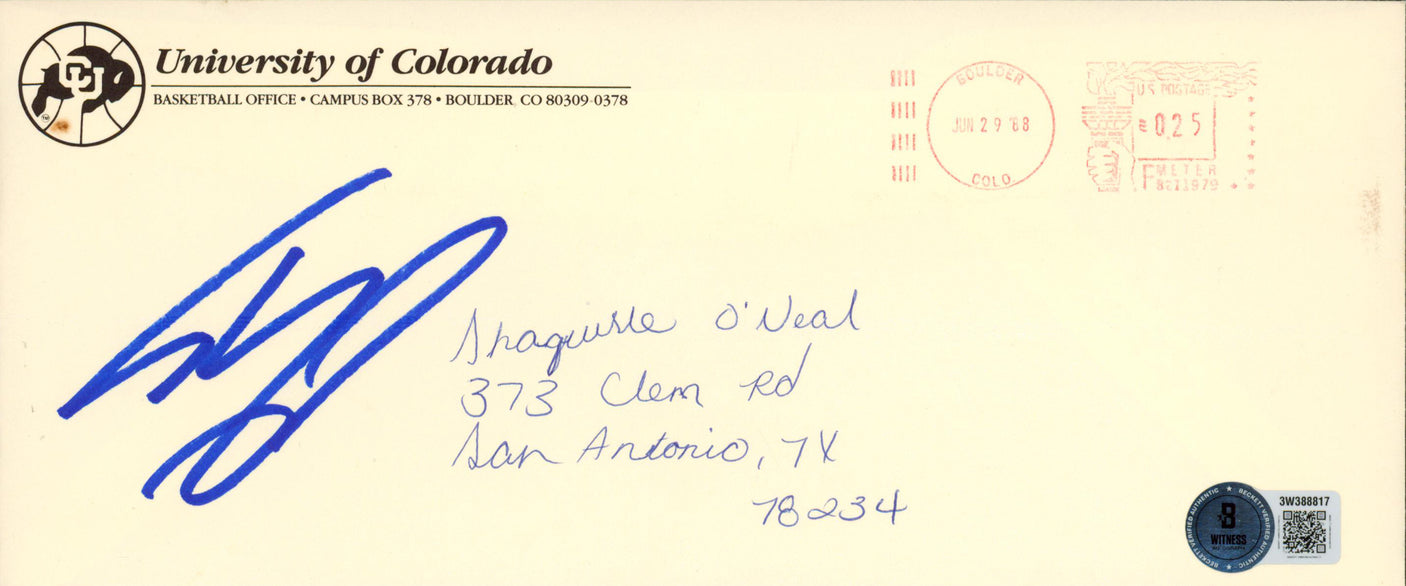 CU
TM
University of Colorado
BASKETBALL OFFICE • CAMPUS BOX 378 • BOULDER, CO 80309-0378
BOULDER
JUN 29 '88
COLO.
U.S. POSTAGE
0.25
METER
Shaquille O'Neal
373 Clem Rd
San Antonio, TX
78234
BECKETT VERIFIED AUTHENTIC ★ BECKETT VERIFIED AUTHENTIC ★
B
WITNESS
3W388817